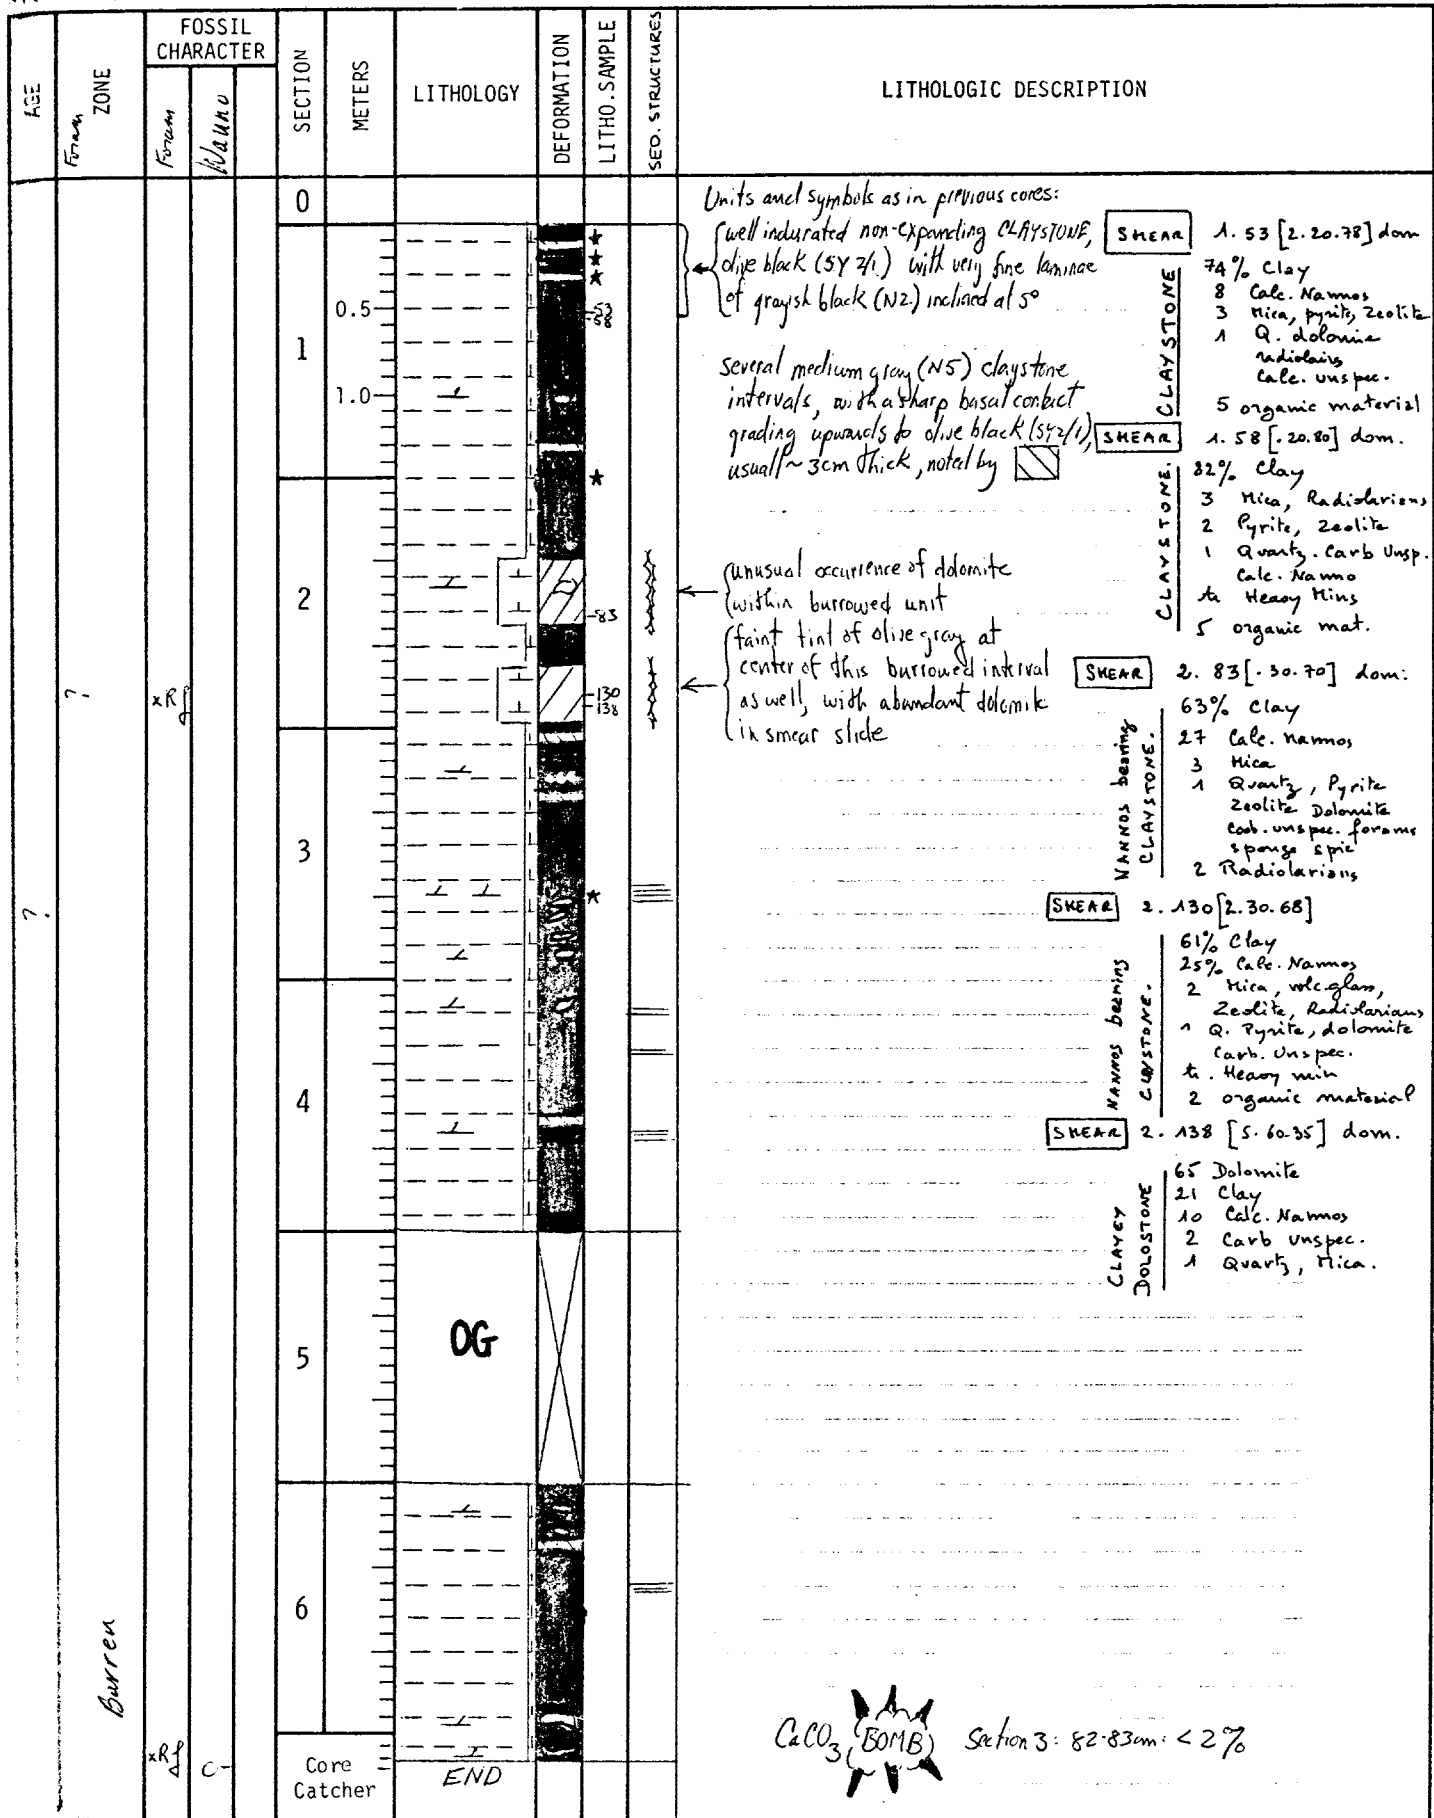 AGE
Foram
ZONE
FOSSIL
CHARACTER
Foram
Nanno
SECTION
METERS
LITHOLOGY
DEFORMATION
LITHO.SAMPLE
SED. STRUCTURES
LITHOLOGIC DESCRIPTION
0
1
0.5
1.0
2
3
4
5
6
Core
Catcher
53
58
83
130
138
OG
END
?
?
xRf
Barren
xRf
C-
Units and symbols as in previous cores:
well indurated non-expanding CLAYSTONE,
olive black (5Y 2/1) with very fine laminae
of grayish black (N2) inclined at 5°
Several medium gray (N5) claystone
intervals, with a sharp basal contact
grading upwards to olive black (5Y2/1),
usuall ~ 3cm thick, noted by
unusual occurrence of dolomite
within burrowed unit
faint tint of olive gray at
center of this burrowed interval
as well, with abundant dolomite
in smear slide
SMEAR 1. 53 [2.20.78] dom
CLAYSTONE
74% Clay
8 Calc. Nannos
3 Mica, pyrite, Zeolite
1 Q. dolomie
radiolairs
Calc. unspec.
5 organic material
SMEAR 1. 58 [.20.80] dom.
CLAYSTONE.
82% Clay
3 Mica, Radiolarians
2 Pyrite, Zeolite
1 Quartz. Carb Unsp.
Calc. Nanno
tr Heavy Mins
5 organic mat.
SMEAR 2. 83 [.30.70] dom:
NANNOS bearing
CLAYSTONE.
63% Clay
27 Calc. nannos
3 Mica
1 Quartz, Pyrite
Zeolite Dolomite
Carb. unspec. forams
sponge spic
2 Radiolarians
SMEAR 2. 130 [2.30.68]
NANNOS bearing
CLAYSTONE.
61% Clay
25% Calc. Nannos
2 Mica, volc.glass,
Zeolite, Radiolarians
1 Q. Pyrite, dolomite
Carb. Unspec.
tr. Heavy min
2 organic material
SMEAR 2. 138 [5.60-35] dom.
CLAYEY
DOLOSTONE
65 Dolomite
21 Clay
10 Calc. Nannos
2 Carb unspec.
1 Quartz, Mica.
CaCO3 BOMB Section 3: 82-83cm: < 2%